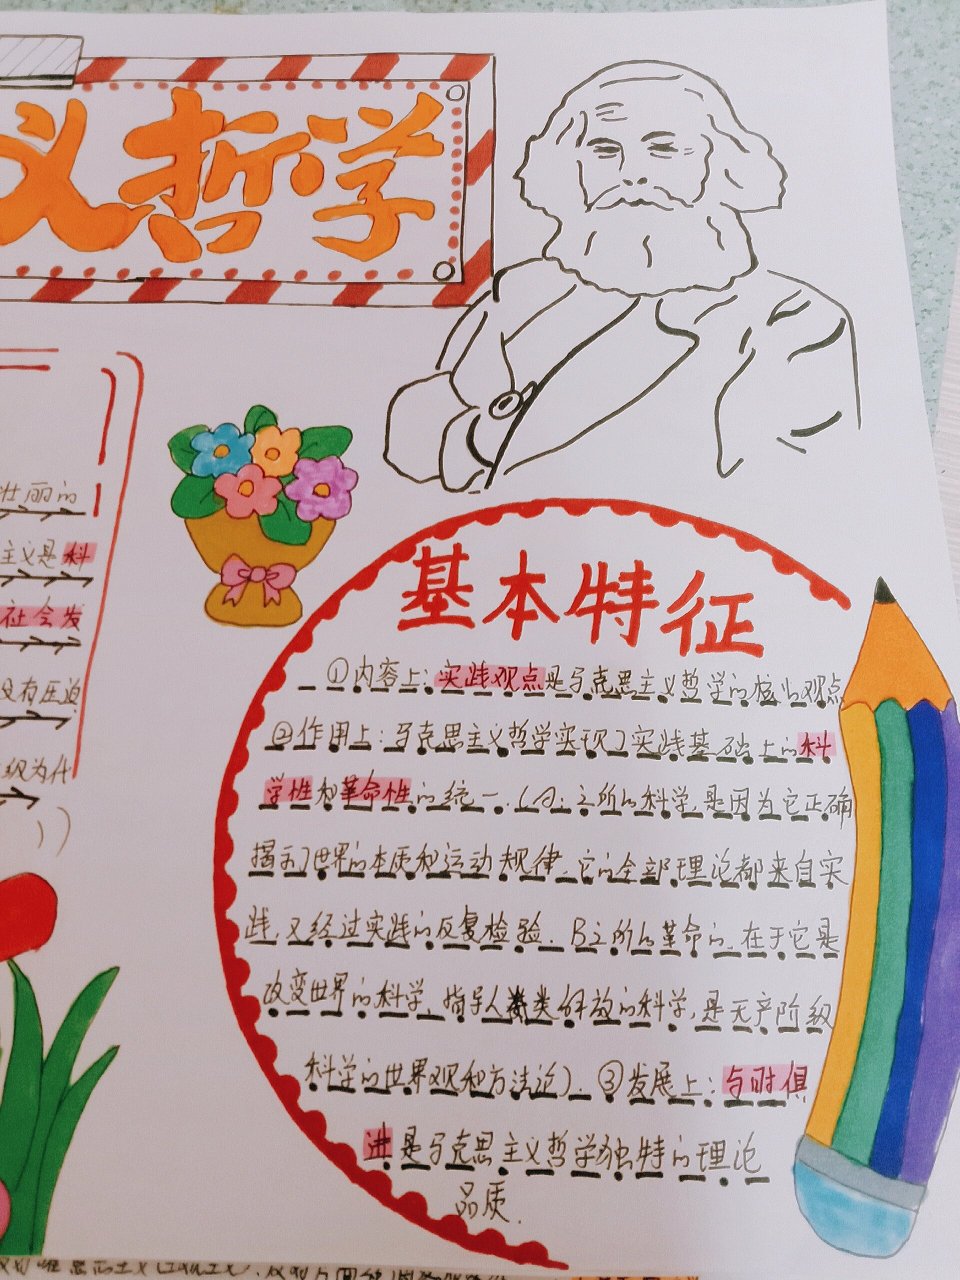 义哲学
壮丽的
主义是科
社会发
没有压迫
级为代
基本特征
①内容上:实践观点是马克思主义哲学的核心观点
②作用上:马克思主义哲学实现了实践基础上的科
学性和革命性的统一.(A:之所以科学,是因为它正确
揭示了世界的本质和运动规律.它的全部理论都来自实
践,又经过实践的反复检验. B之所以革命的.在于它是
改变世界的科学.指导人类解放的科学,是无产阶级
科学的世界观和方法论). ③发展上:与时俱
进是马克思主义哲学独特的理论
品质.